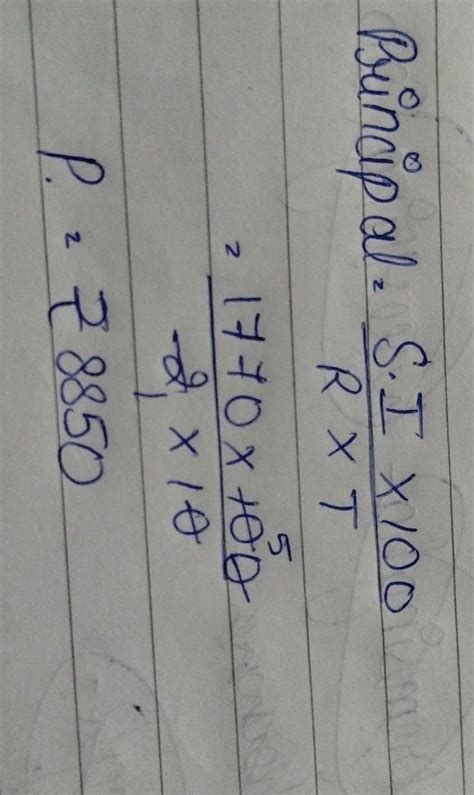 Principal = S.I × 100
R × T
= 1770 × 100 5
2 1 × 10
P. = ₹ 8850